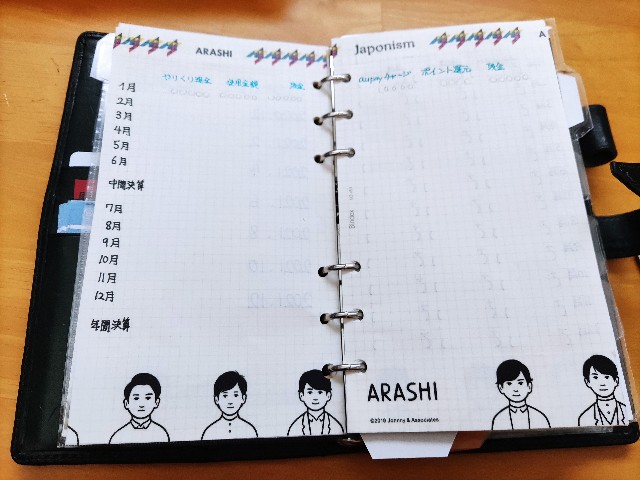 ARASHI
やりくり現金 使用金額 残金
1月
2月
3月
4月
5月
6月
中間決算
7月
8月
9月
10月
11月
12月
年間決算
Japonism
A
aupayチャージ ポイント還元 残金
10000
ARASHI
©2019 Johnny & Associates